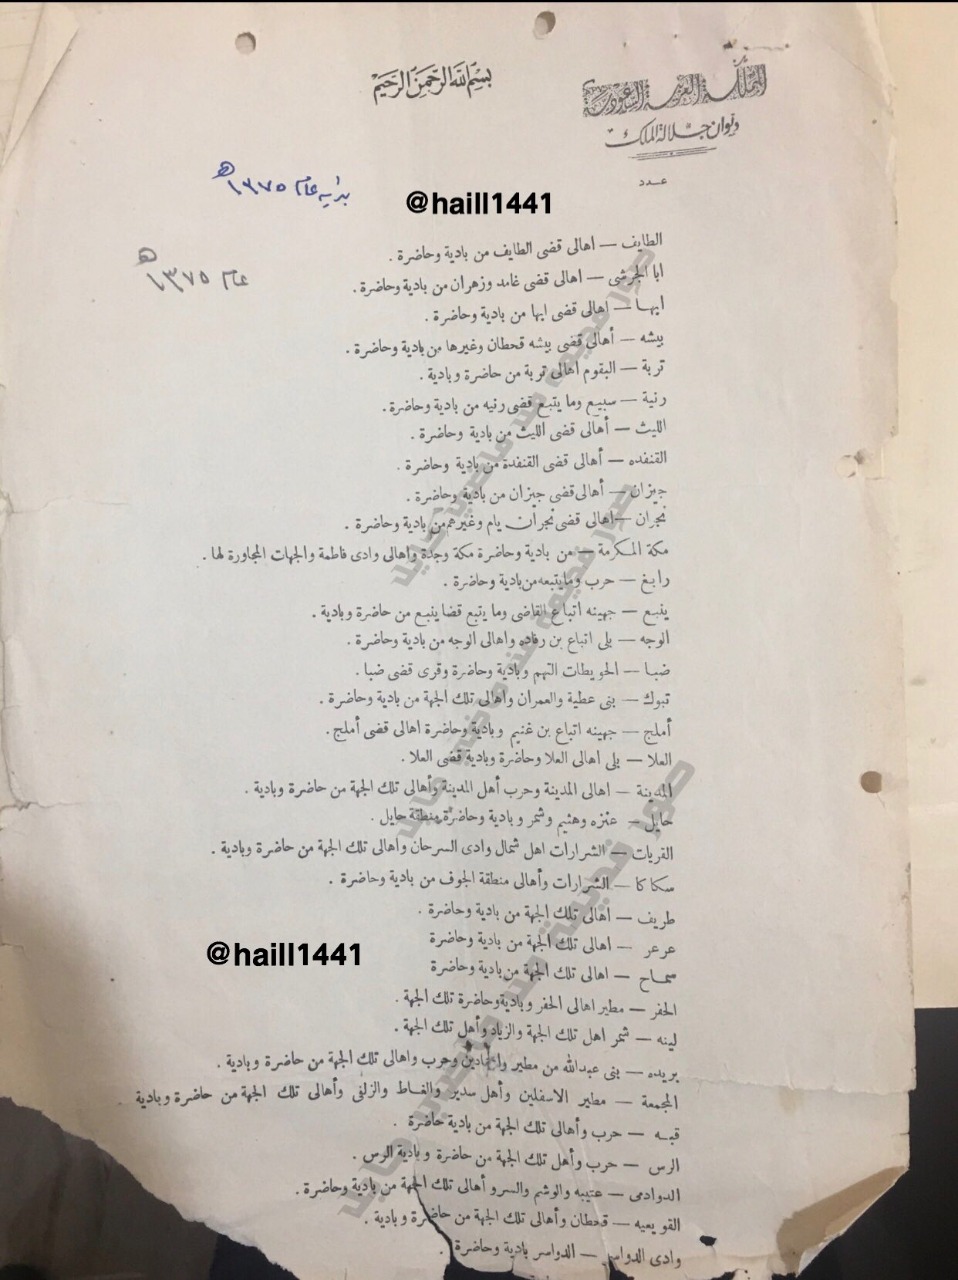 بسم الله الرحمن الرحيم
المملكة العربية السعودية
ديوان جلالة الملك
عدد
بداية عام ١٣٧٥هـ
@haill1441
عام ١٣٧٥هـ
الطايف — اهالى قضى الطايف من بادية وحاضرة .
ابا الجرشى — اهالى قضى غامد وزهران من بادية وحاضرة .
ابهـا — اهالى قضى ابها من بادية وحاضرة .
بيشه — أهالى قضى بيشه قحطان وغيرها من بادية وحاضرة .
تربة — البقوم اهالى تربة من حاضرة وبادية .
رنية — سبيع وما يتبع قضى رنيه من بادية وحاضرة .
الليث — أهالى قضى الليث من بادية وحاضرة .
القنفده — أهالى قضى القنفدة من بادية وحاضرة .
جيزان — أهالى قضى جيزان من بادية وحاضرة .
نجران — اهالى قضى نجران يام وغيرهم من بادية وحاضرة .
مكة المكرمة — من بادية وحاضرة مكة وجدة واهالى وادى فاطمة والجهات المجاورة لها .
رابغ — حرب وما يتبعه من بادية وحاضرة .
ينبع — جهينه اتباع القاضى وما يتبع قضا ينبع من حاضرة وبادية .
الوجه — بلى اتباع بن رفاده واهالى الوجه من بادية وحاضرة .
ضبا — الحويطات التهم وبادية وحاضرة وقرى قضى ضبا .
تبوك — بنى عطية والعمران واهالى تلك الجهة من بادية وحاضرة .
أملج — جهينه اتباع بن غنيم وبادية وحاضرة اهالى قضى أملج .
العلا — بلى اهالى العلا وحاضرة وبادية قضى العلا .
المدينة — اهالى المدينة وحرب أهل المدينة وأهالى تلك الجهة من حاضرة وبادية .
حايل — عنزه وهتيم وشمر وبادية وحاضرة منطقة حايل .
القريات — الشرارات اهل شمال وادى السرحان واهالى تلك الجهة من حاضرة وبادية .
سكاكا — الشرارات وأهالى منطقة الجوف من بادية وحاضرة .
طريف — اهالى تلك الجهة من بادية وحاضرة .
عرعر — اهالى تلك الجهة من بادية وحاضرة
سماح — اهالى تلك الجهة من بادية وحاضرة
@haill1441
الحفر — مطير اهالى الحفر وبادية وحاضرة تلك الجهة .
لينه — شمر اهل تلك الجهة والزياد وأهل تلك الجهة .
بريده — بنى عبدالله من مطير وحرب واهالى تلك الجهة من حاضرة وبادية .
المجمعة — مطير الاسفلين وأهل سدير والغاط والزلفى وأهالى تلك الجهة من حاضرة وبادية
قبـه — حرب وأهالى تلك الجهة من بادية حاضرة .
الرس — حرب وأهل تلك الجهة من حاضرة وبادية الرس .
الدوادمى — عتيبه والوشم والسر وأهالى تلك الجهة من بادية وحاضرة .
القويعيه — قحطان وأهالى تلك الجهة من حاضرة وبادية .
وادى الدواسر — الدواسر بادية وحاضرة .